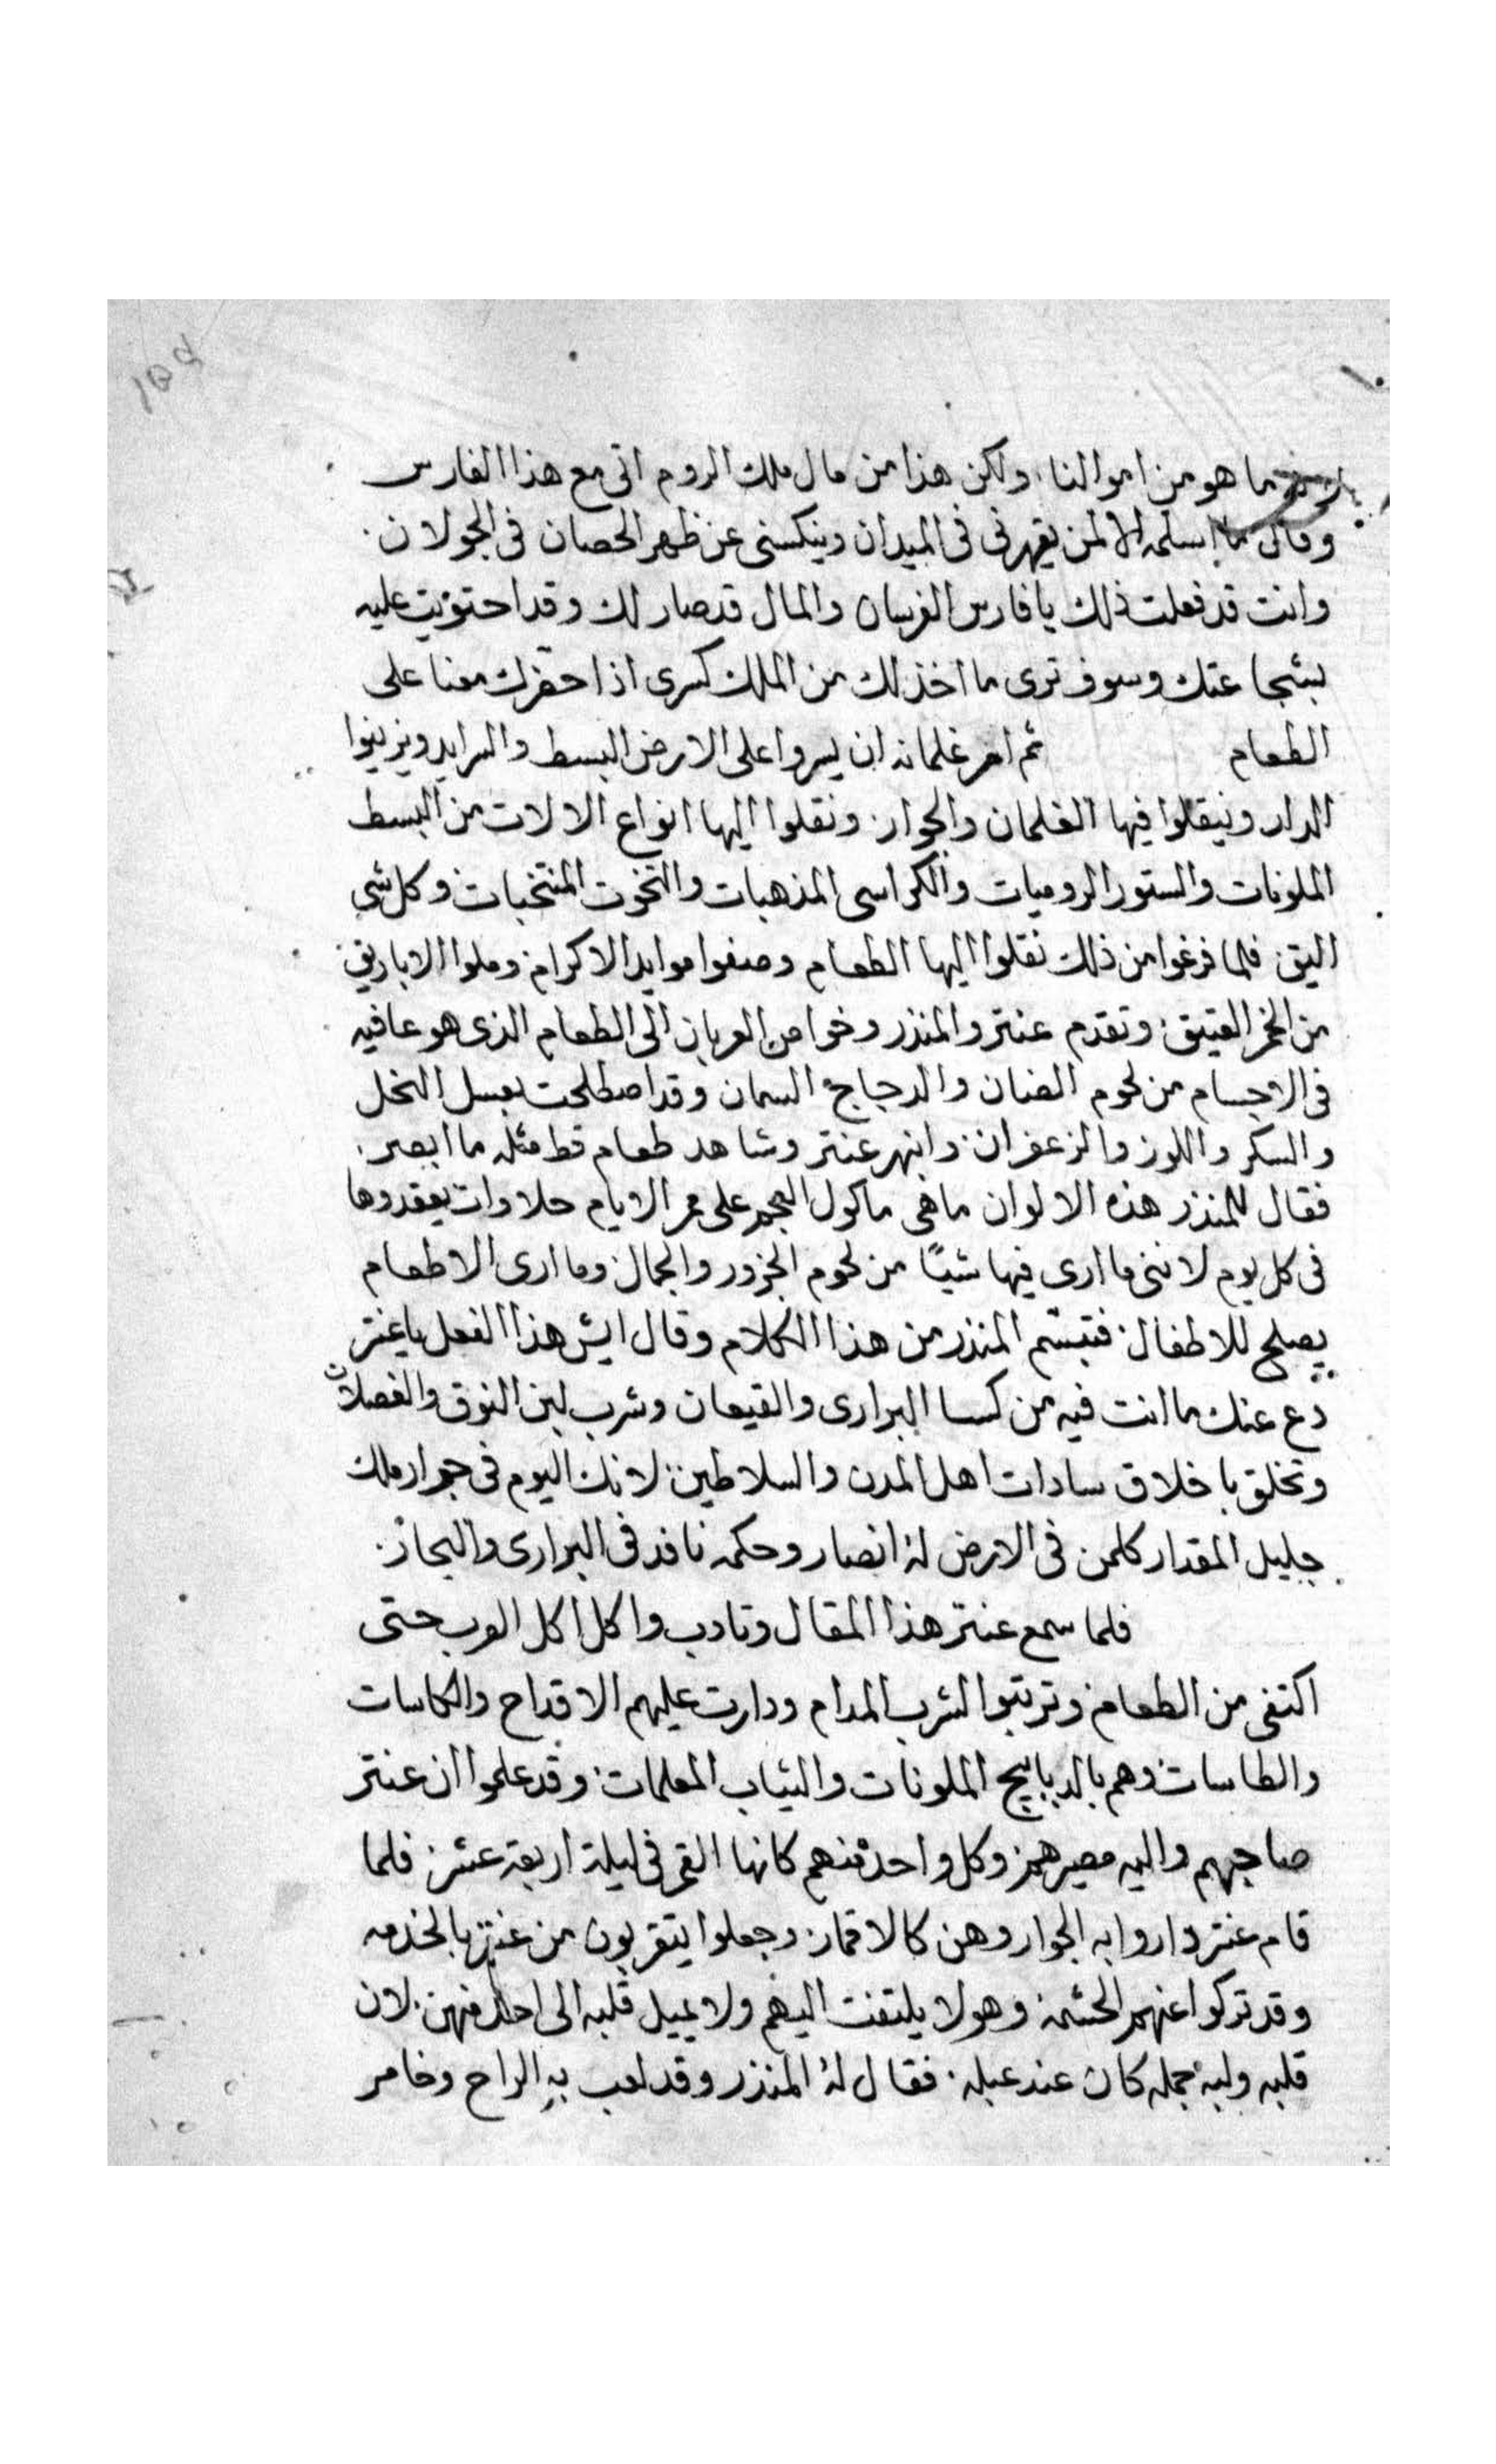 ١٥٩
ما هو من اموالنا، ولكن هذا من مال ملك الروم اتى مع هذا الفارس
وقال ما اسلمه الا لمن يقهرنى فى الميدان وينكسنى عن ظهر الحصان فى الجولان.
وانت قد فعلت ذلك يا فارس الفرسان والمال قد صار لك وقد احتويت عليه
بشجاعتك وسوف ترى ما اخذ لك من الملك كسرى اذا حضرك معنا على
الطعام ثم امر غلمانه ان يسروا على الارض البسط والسراير ويزينوا
الدار وينقلوا فيها الغلمان والجوار. ونقلوا اليها انواع الالات من البسط
الملونات والستور الروميات والكراسى المذهبات والتخوت المنتخبات وكل شى
اليق. فلما فرغوا من ذلك نقلوا اليها الطعام وصفوا موايد الاكرام. وملوا الاباريق.
من الخمر العتيق. وتقدم عنتر والمنذر وخواص العربان الى الطعام الذى هو عافيه
فى الاجسام من لحوم الضان والدجاج السمان وقد اصطلحت بعسل النحل
والسكر واللوز والزعفران. وانبهر عنتر وشاهد طعام قط مثله ما ابصر.
فقال للمنذر هذه الالوان ماهى ماكول العجم على ممر الايام حلاوات يعقدوها
فى كل يوم لاننى ما ارى فيها شيًا من لحوم الجزور والجمال. وما ارى الا طعام
يصلح للاطفال. فتبسّم المنذر من هذا الكلام وقال ايش هذا الفعل يا عنتر
دع عنك ما انت فيه من كسا البرارى والقيعان وشرب لبن النوق والفصلان
وتخلق باخلاق سادات اهل المدن والسلاطين. لانك اليوم فى جوار ملك
جليل المقدار كلمن فى الارض لهُ انصار وحكمه نافد فى البرارى والبحار.
فلما سمع عنتر هذا المقال وتادب واكل اكل العرب حتى
اكتفى من الطعام. وترتبوا لشرب المدام ودارت عليهم الاقداح والكاسات
والطاسات. وهم بالديابيج الملونات والثياب المعلمات. وقد علموا ان عنتر
صاحبهم واليه مصيرهم. وكل واحد منهم كانها القمر فى ليلة اربعة عشر. فلما
قام عنتر داروا به الجوار وهن كالاقمار. وجعلوا يتقربون من عنتر بالخدمه
وقد تركوا عنهم الحشمة. وهو لا يلتفت اليهم ولا يميل قلبه الى احد منهن. لان
قلبه ولبه جمله كان عند عبله. فقال لهُ المنذر وقد لعب بهِ الراح وخامر